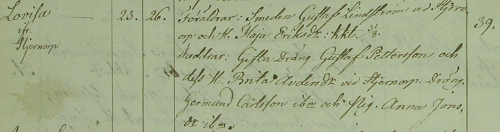 Lovisa 23. 26. Föräldrar: Smeden Gustaf Lindström vid Hjern-
ifr. orp och H. Maja Eriksdr: kkt. 39.
Hjernorp Faddrar: Gifta Dräng. Gustaf Pettersson och
dess H. Brita Andersdt vid Hjernorp. Dräng.
Germund Carlsson ibm och Pig. Anna Jons-
dt ibm.